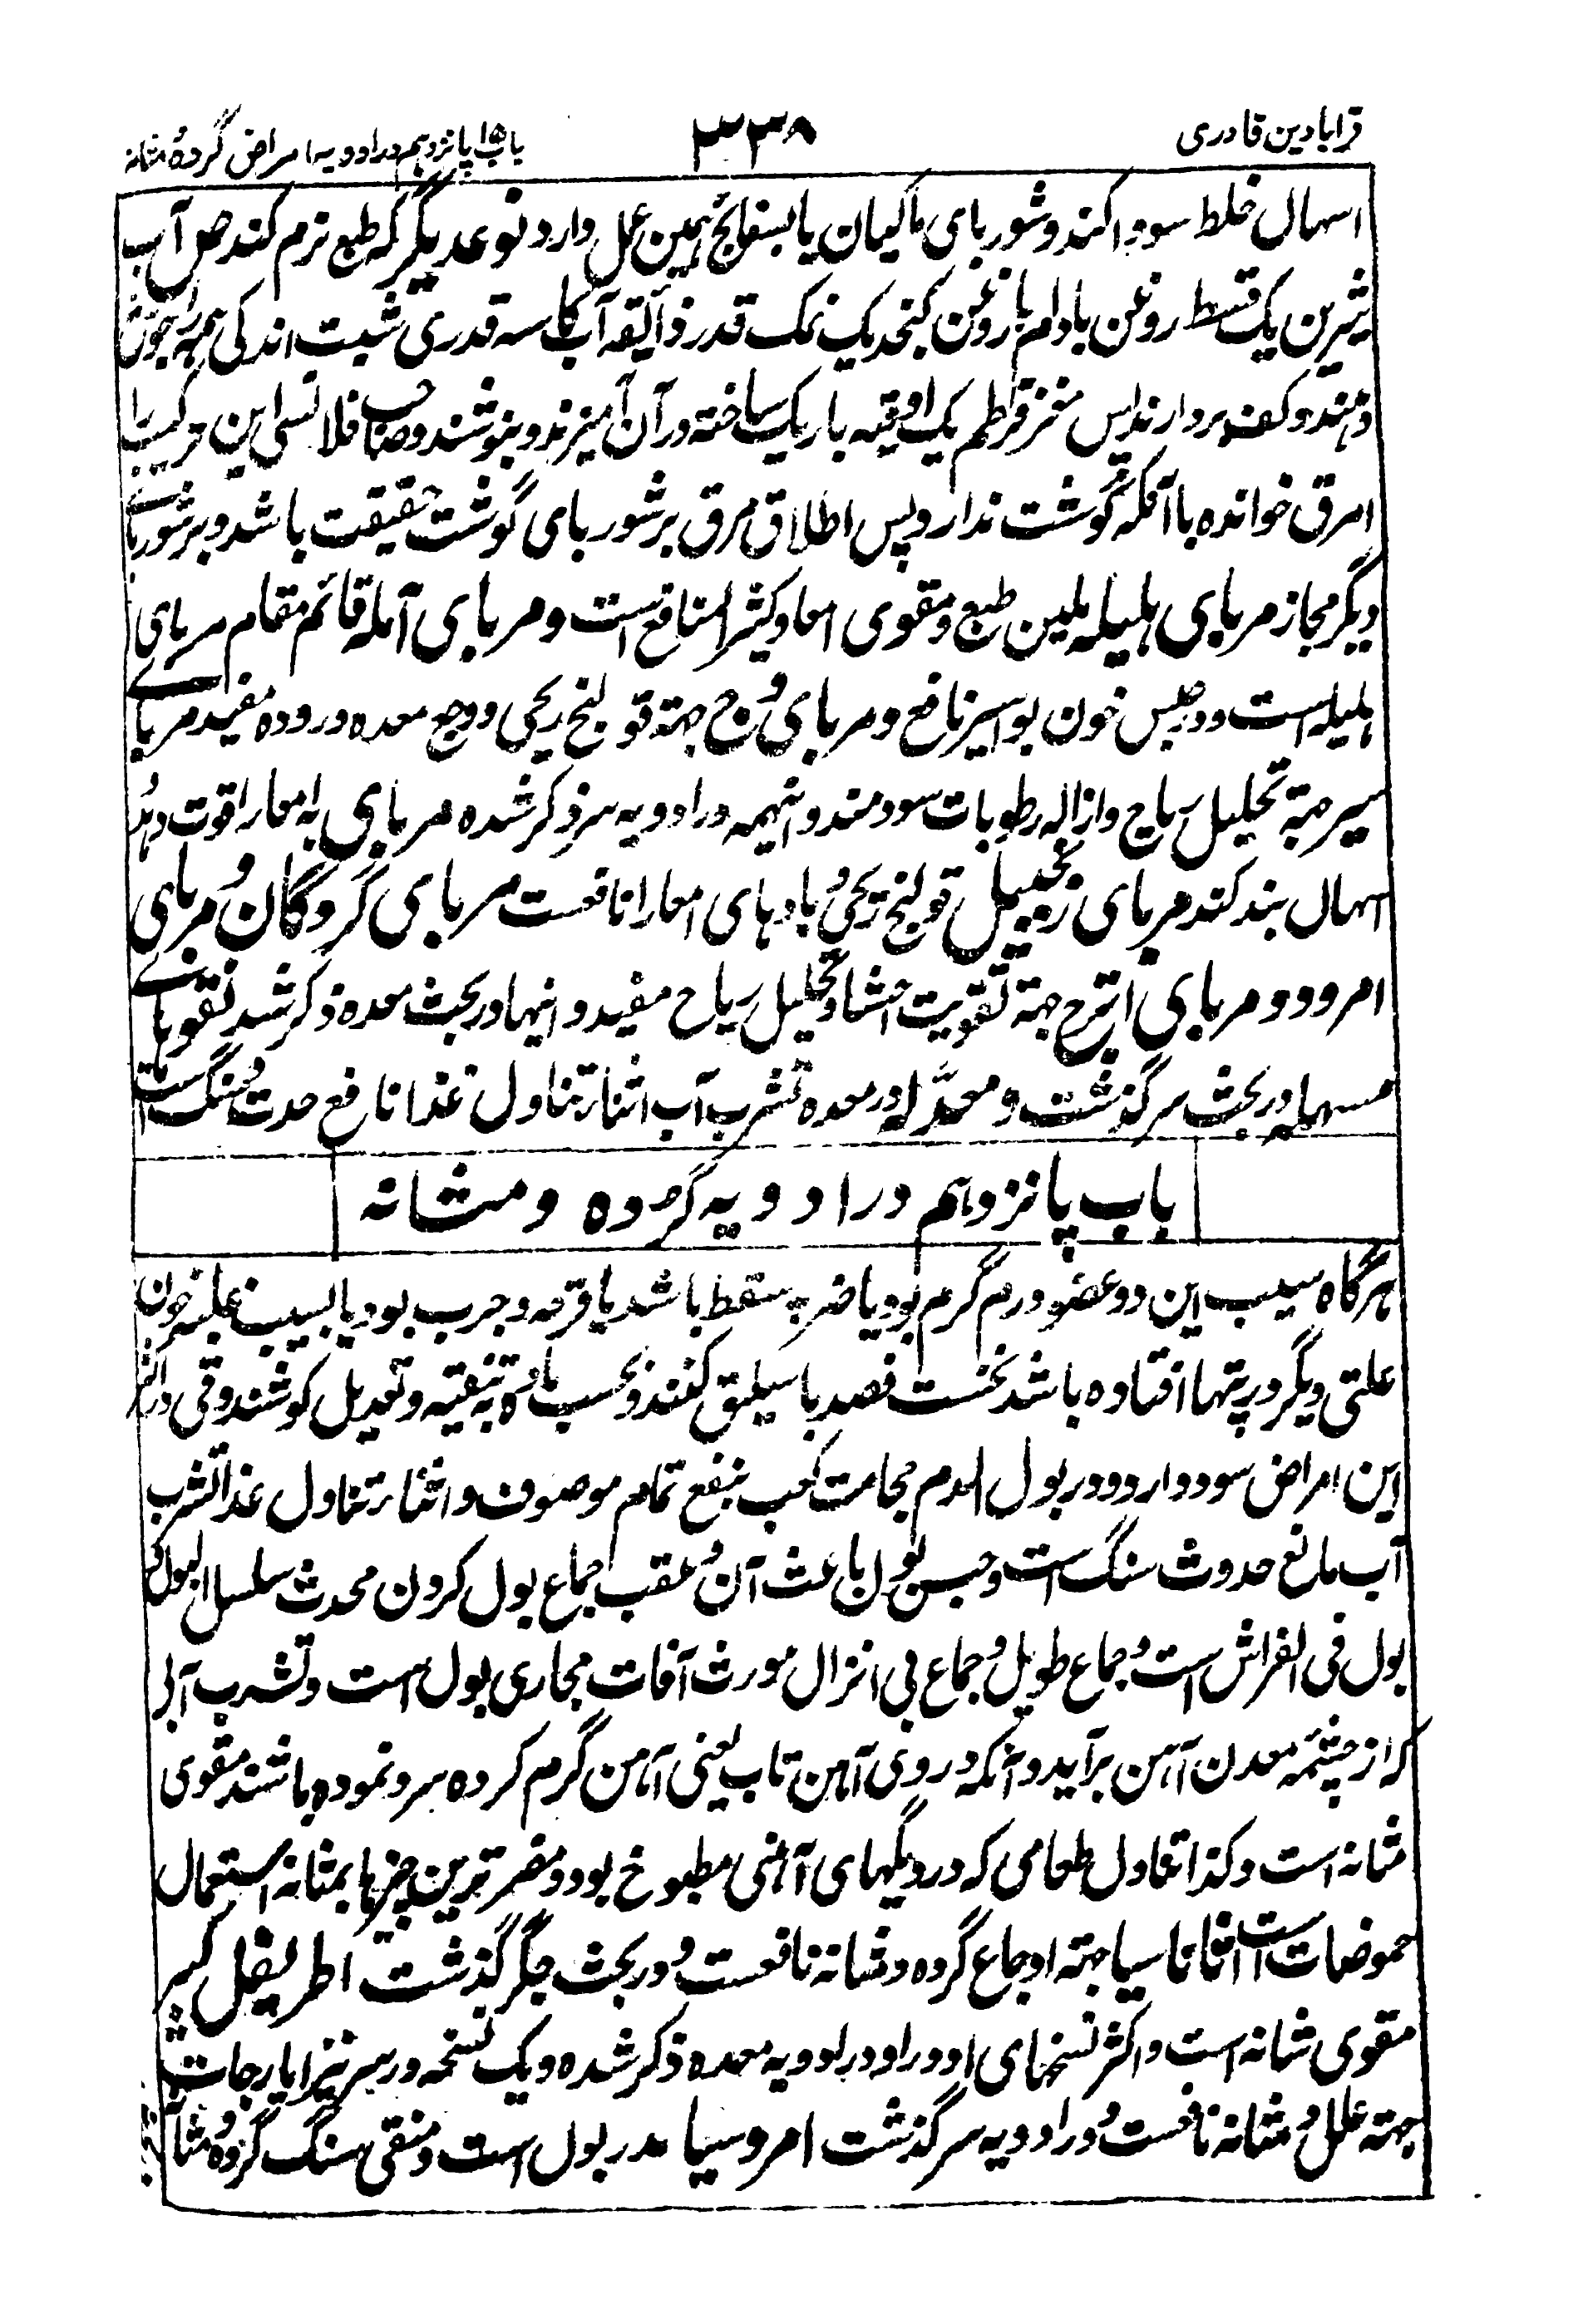 قرابادین قادری
۳۳۸
باب پانزدہم در ادویہ امراض گردہ و مثانہ
اسہال خلط سودا کند و شوربای ماکیان با بسفائج ہمین عمل دارد نوعدیگر کہ طبع نرم کند ص آب
شیرین یک قسط روغن بادام یا روغن کنجد یک نمک قدر ذائقہ آبکاسہ قدری شبت اندکی ہمہ را جوش
دہند و کف بردارند پس مغز قرطم یک اوقیہ باریک ساختہ در آن آمیزند و بنوشند و صاحب فلانسی این ترکیب را
امرق خواندہ با آنکہ گوشت ندارد پس اطلاق مرق بر شوربای گوشت حقیقت باشد و بر شوربای
دیگر مجاز مربای ہلیلہ ملین طبع و مقوی امعا و کثیر المنافع است و مربای آملہ قائم مقام مربای
ہلیلہ است و در حبس خون بواسیر نافع و مربای وج جہتہ قولنج ریحی و وجع معدہ و رودہ مفید مربای
سیر جہتہ تحلیل ریاح و ازالہ رطوبات سودمند و اینہمہ در ادویہ سر ذکر شدہ مربای بہ امعا را قوت دہد
اسہال بند کند مربای زنجبیل قولنج ریحی و بادہای امعا را نافعست مربای گردگان و مربای
امرود و مربای اترج جہتہ تقویت احشا و تحلیل ریاح مفید و اینہا در بحث معدہ ذکر شد نقوعہای
مسہلہ در بحث سر گذشت و معدلہ در معدہ تشرب آب اثناء تناول غذا نافع حدت سنگ است
باب پانزدہم در ادویہ گردہ و مثانہ
ہرگاہ سبب این دو عضو ورم گرم بود یا ضربہ سقطہ باشد یا قرحہ و جرب بود یا بسبب غلبہ خون
علتی دیگر در پتہا افتادہ باشد نخست فصد باسلیق کنند و بحسب مادہ بہ تنقیہ و تعدیل کوشند و قی در اکثر
این امراض سود دارد و در بول الدم حجامت کعب بنفع تمام موصوف و اثناء تناول غذا تشرب
آب مانع حدوث سنگ است و حبس بول باعث آن و عقب جماع بول کردن محدث سلسل البول و
بول فی الفراش است و جماع طویل و جماع بی انزال مورث آفات مجاری بول است و تشرب آبی
کہ از چشمہ معدن آہن برآید و آنکہ در وی آہن تاب یعنی آہن گرم کردہ سرد نمودہ باشند مقوی
مثانہ است و کذا تناول طعامی کہ در دیگہای آہنی مطبوخ بود و مضرترین چیزہا بمثانہ استعمال
حموضات است اثاناسیا جہتہ اوجاع گردہ و مثانہ نافعست و در بحث جگر گذشت اطریفل کبیر
مقوی مثانہ است و اکثر نسخہای او در ادویہ معدہ ذکر شدہ و یک نسخہ در سر نیز ایارجات
جہتہ علل مثانہ نافعست و در ادویہ سر گذشت امروسیا مدر بول است و منقی سنگ گردہ و مثانہ